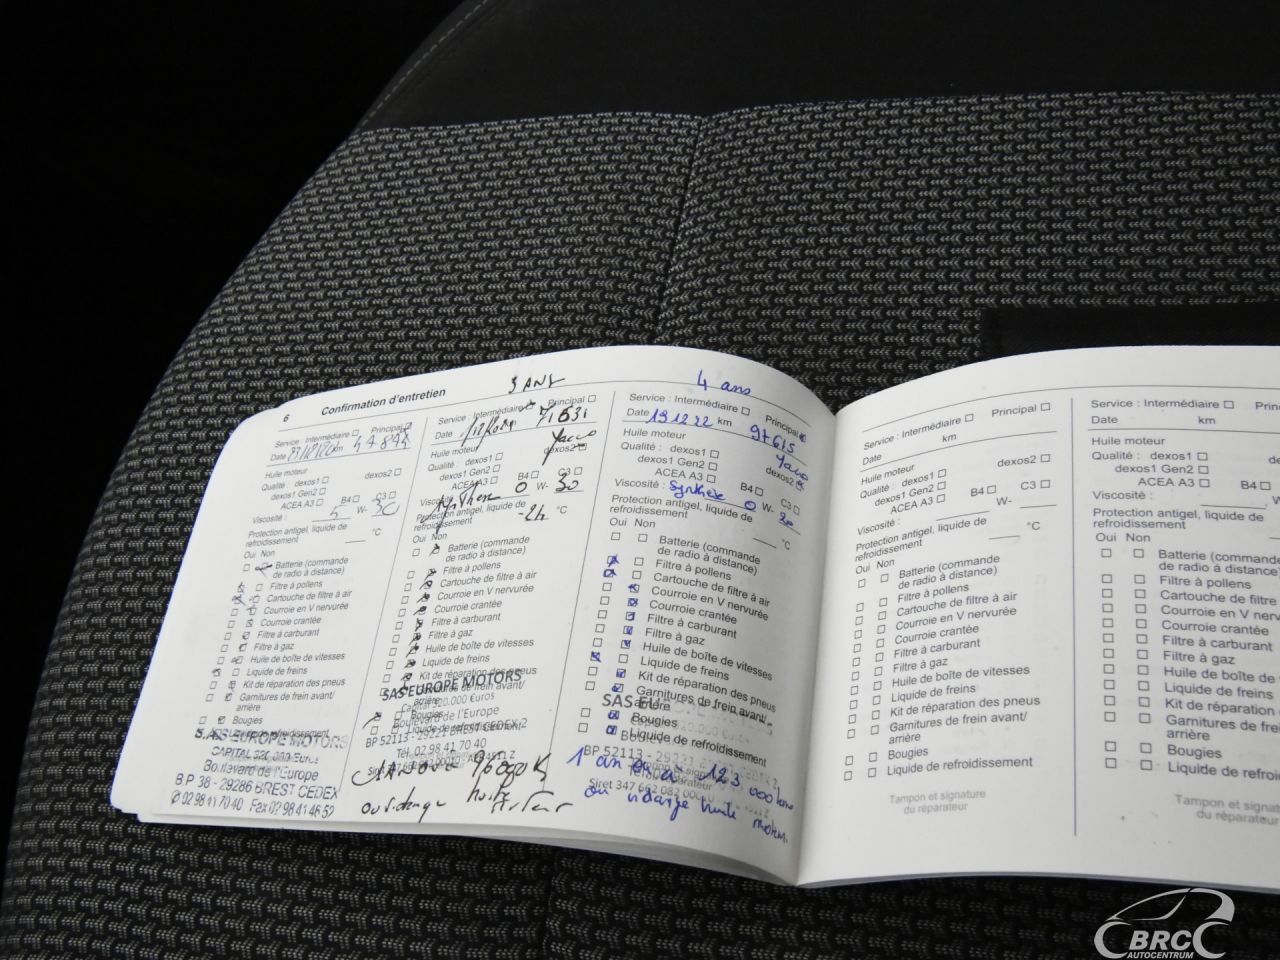 6 Confirmation d'entretien
Service : Intermédiaire Principal
Date km 44892
Huile moteur
Qualité : dexos1 dexos2
dexos1 Gen2
ACEA A3 B4 C3
Viscosité : 5 W- 30
Protection antigel, liquide de
refroidissement °C
Oui Non
Batterie (commande
de radio à distance)
Filtre à pollens
Cartouche de filtre à air
Courroie en V nervurée
Courroie crantée
Filtre à carburant
Filtre à gaz
Huile de boîte de vitesses
Liquide de freins
Kit de réparation des pneus
Garnitures de frein avant/
arrière
Bougies
Liquide de refroidissement
S.A.S EUROPE MOTORS
CAPITAL 320.000 Euros
Boulevard de l'Europe
B P 38 - 29286 BREST CEDEX
02 98 41 70 40 Fax 02 98 41 46 52
3 ANS
Service : Intermédiaire Principal
Date
Huile moteur
Qualité : dexos1 dexos2
dexos1 Gen2
ACEA A3 B4 C3
Viscosité : 0 W- 30
Protection antigel, liquide de
refroidissement °C
Oui Non
Batterie (commande
de radio à distance)
Filtre à pollens
Cartouche de filtre à air
Courroie en V nervurée
Courroie crantée
Filtre à carburant
Filtre à gaz
Huile de boîte de vitesses
Liquide de freins
Kit de réparation des pneus
Garnitures de frein avant/
arrière
Bougies
Liquide de refroidissement
SAS EUROPE MOTORS
Capital 320.000 Euros
Boulevard de l'Europe
BP 52113 - 29221 BREST CEDEX 2
Tél. 02 98 41 70 40
ou vidange huile
4 ans
Service : Intermédiaire Principal
Date 19 12 22 km 97615
Huile moteur
Qualité : dexos1 dexos2
dexos1 Gen2
ACEA A3 B4 C3
Viscosité : Synthèse 0 W- 30
Protection antigel, liquide de
refroidissement °C
Oui Non
Batterie (commande
de radio à distance)
Filtre à pollens
Cartouche de filtre à air
Courroie en V nervurée
Courroie crantée
Filtre à carburant
Filtre à gaz
Huile de boîte de vitesses
Liquide de freins
Kit de réparation des pneus
Garnitures de frein avant/
arrière
Bougies
Liquide de refroidissement
BP 52113
Siret 347 662 082
1 an ou à 123 000 km
ou vidange huile moteur.
Service : Intermédiaire Principal
Date km
Huile moteur
Qualité : dexos1 dexos2
dexos1 Gen2
ACEA A3 B4 C3
Viscosité : W-
Protection antigel, liquide de
refroidissement °C
Oui Non
Batterie (commande
de radio à distance)
Filtre à pollens
Cartouche de filtre à air
Courroie en V nervurée
Courroie crantée
Filtre à carburant
Filtre à gaz
Huile de boîte de vitesses
Liquide de freins
Kit de réparation des pneus
Garnitures de frein avant/
arrière
Bougies
Liquide de refroidissement
Tampon et signature
du réparateur
Service : Intermédiaire
Date km
Huile moteur
Qualité : dexos1
dexos1 Gen2
ACEA A3 B4
Viscosité : W-
Protection antigel, liquide de
refroidissement
Oui Non
Batterie (commande
de radio à distance)
Filtre à pollens
Cartouche de filtre à
Courroie en V nervurée
Courroie crantée
Filtre à carburant
Filtre à gaz
Huile de boîte de
Liquide de freins
Kit de réparation
Garnitures de frein
arrière
Bougies
Liquide de
Tampon et
du réparateur
BRC
AUTOCENTRUM